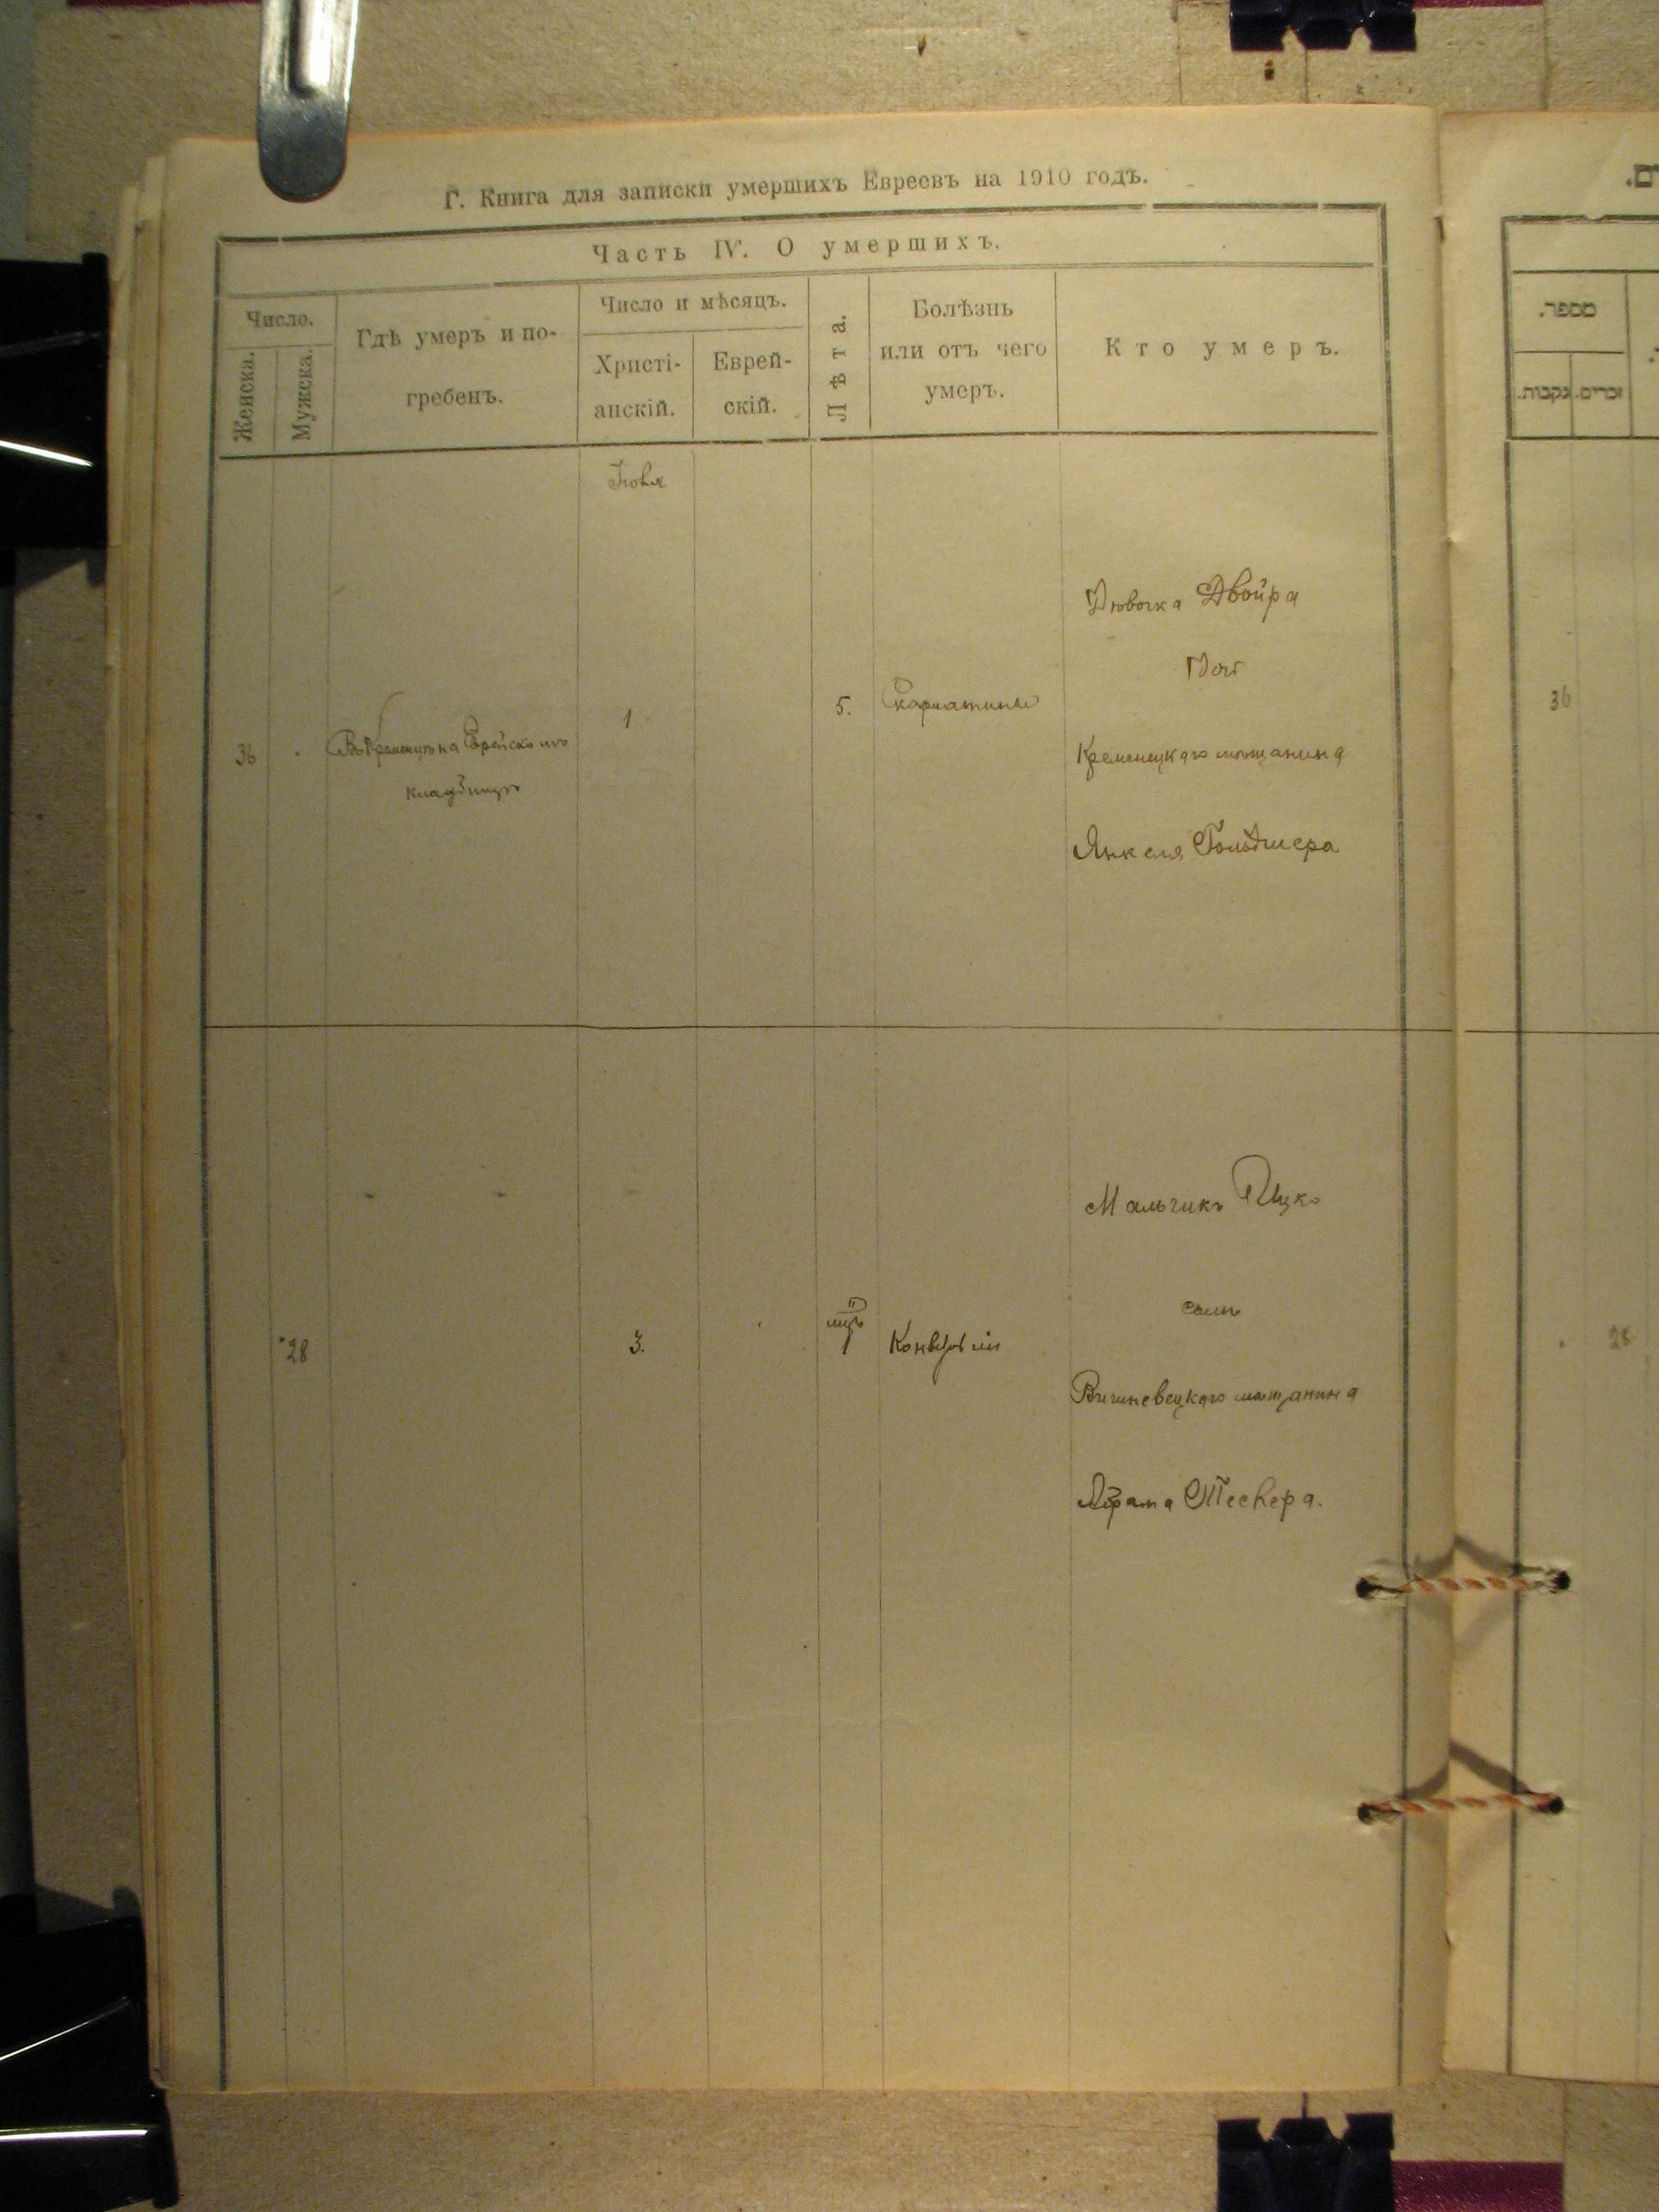 Г. Книга для записки умершихъ Евреевъ на 1910 годъ.
Часть IV. О умершихъ.
Число.
Женска.
Мужска.
Гдѣ умеръ и по-
гребенъ.
Число и мѣсяцъ.
Христі-
анскій.
Еврей-
скій.
Лѣта.
Болѣзнь
или отъ чего
умеръ.
Кто умеръ.
36
Въ Кременцѣ на Еврейскомъ
кладбищѣ
1
5.
Скарлатины
Двойра
Кременецкаго мѣщанина
Янкеля
28
3.
Мальчикъ Ицко
сынъ
Вишневецкаго мѣщанина
מספר.
זכרים.
נקבות.
36
28